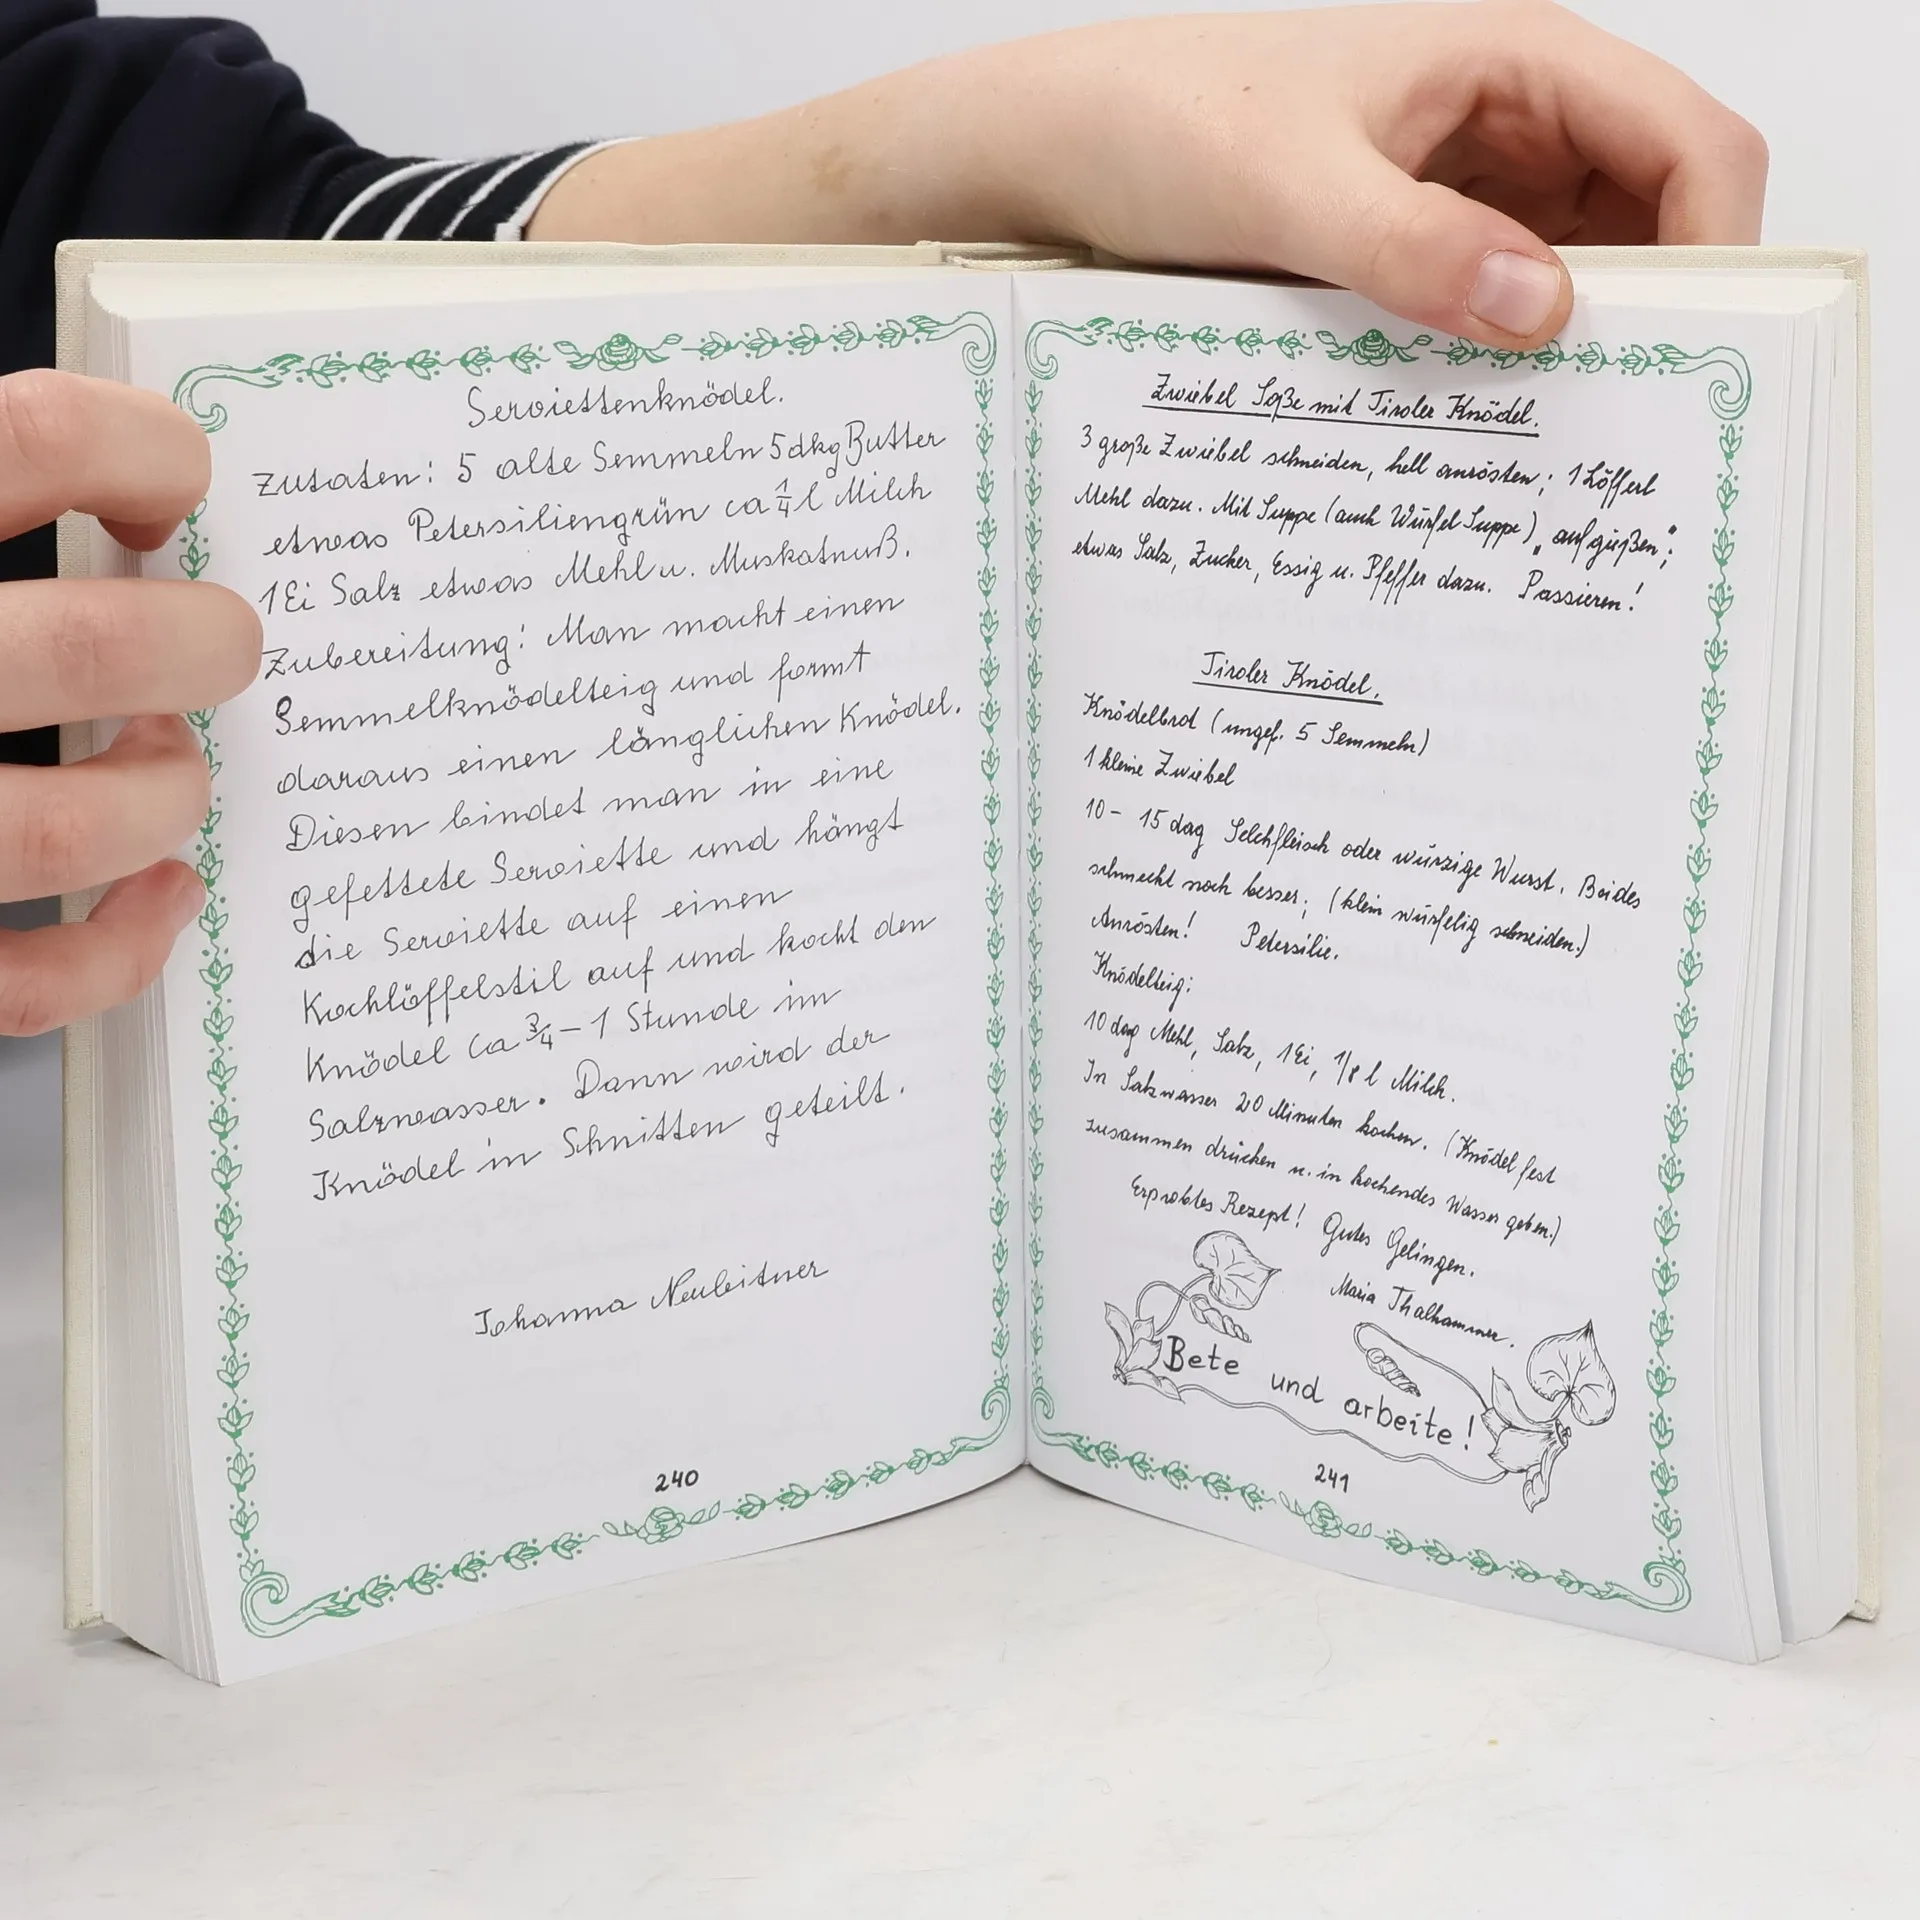 Serviettenknödel.
Zutaten: 5 alte Semmeln 5 dkg Butter
etwas Petersiliengrün ca 1/4 l Milch
1 Ei Salz etwas Mehl u. Muskatnuß.
Zubereitung: Man macht einen
Semmelknödelteig und formt
daraus einen länglichen Knödel.
Diesen bindet man in eine
gefettete Serviette und hängt
die Serviette auf einen
Kochlöffelstil auf und kocht den
Knödel ca 3/4 – 1 Stunde im
Salzwasser. Dann wird der
Knödel in Schnitten geteilt.
Johanna Neuleitner
240
Zwiebel Soße mit Tiroler Knödel.
3 große Zwiebel schneiden, hell anrösten; 1 Löfferl
Mehl dazu. Mit Suppe (auch Würfel Suppe) „aufgießen";
etwas Salz, Zucker, Essig u. Pfeffer dazu. Passieren!
Tiroler Knödel.
Knödelbrot (ungef. 5 Semmeln)
1 kleine Zwiebel
10 – 15 dag Selchfleisch oder würzige Wurst. Beides
schmeckt noch besser; (klein würfelig schneiden.)
Anrösten! Petersilie.
Knödelteig:
10 dag Mehl, Salz, 1 Ei, 1/8 l Milch.
In Salzwasser 20 Minuten kochen. (Knödel fest
zusammen drücken u. in kochendes Wasser geben.)
Erprobtes Rezept! Gutes Gelingen.
Maria Thalhammer.
Bete und arbeite!
241